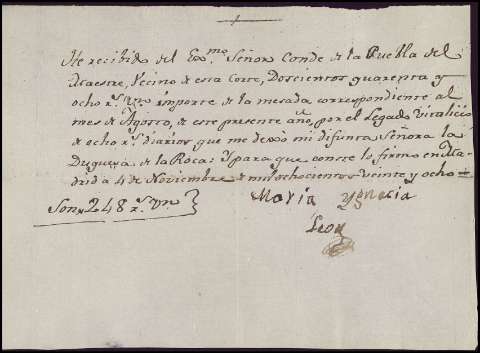 He recibido del Exmo. Señor Conde de la Puebla del
Maestre, Vecino de esta Corte, Doscientos quarenta y
ocho rs. vn. importe de la mesada correspondiente al
mes de Agosto, de este presente año, por el Legado Vitalicio
de ocho rs. diarios que me dexó mi difunta Señora la
Duquesa de la Roca: Y para que conste lo firmo en Ma-
drid a 4 de Noviembre de mil ochocientos veinte y ocho=
Son 248 rs. vn
Maria Ygnacia
Leon